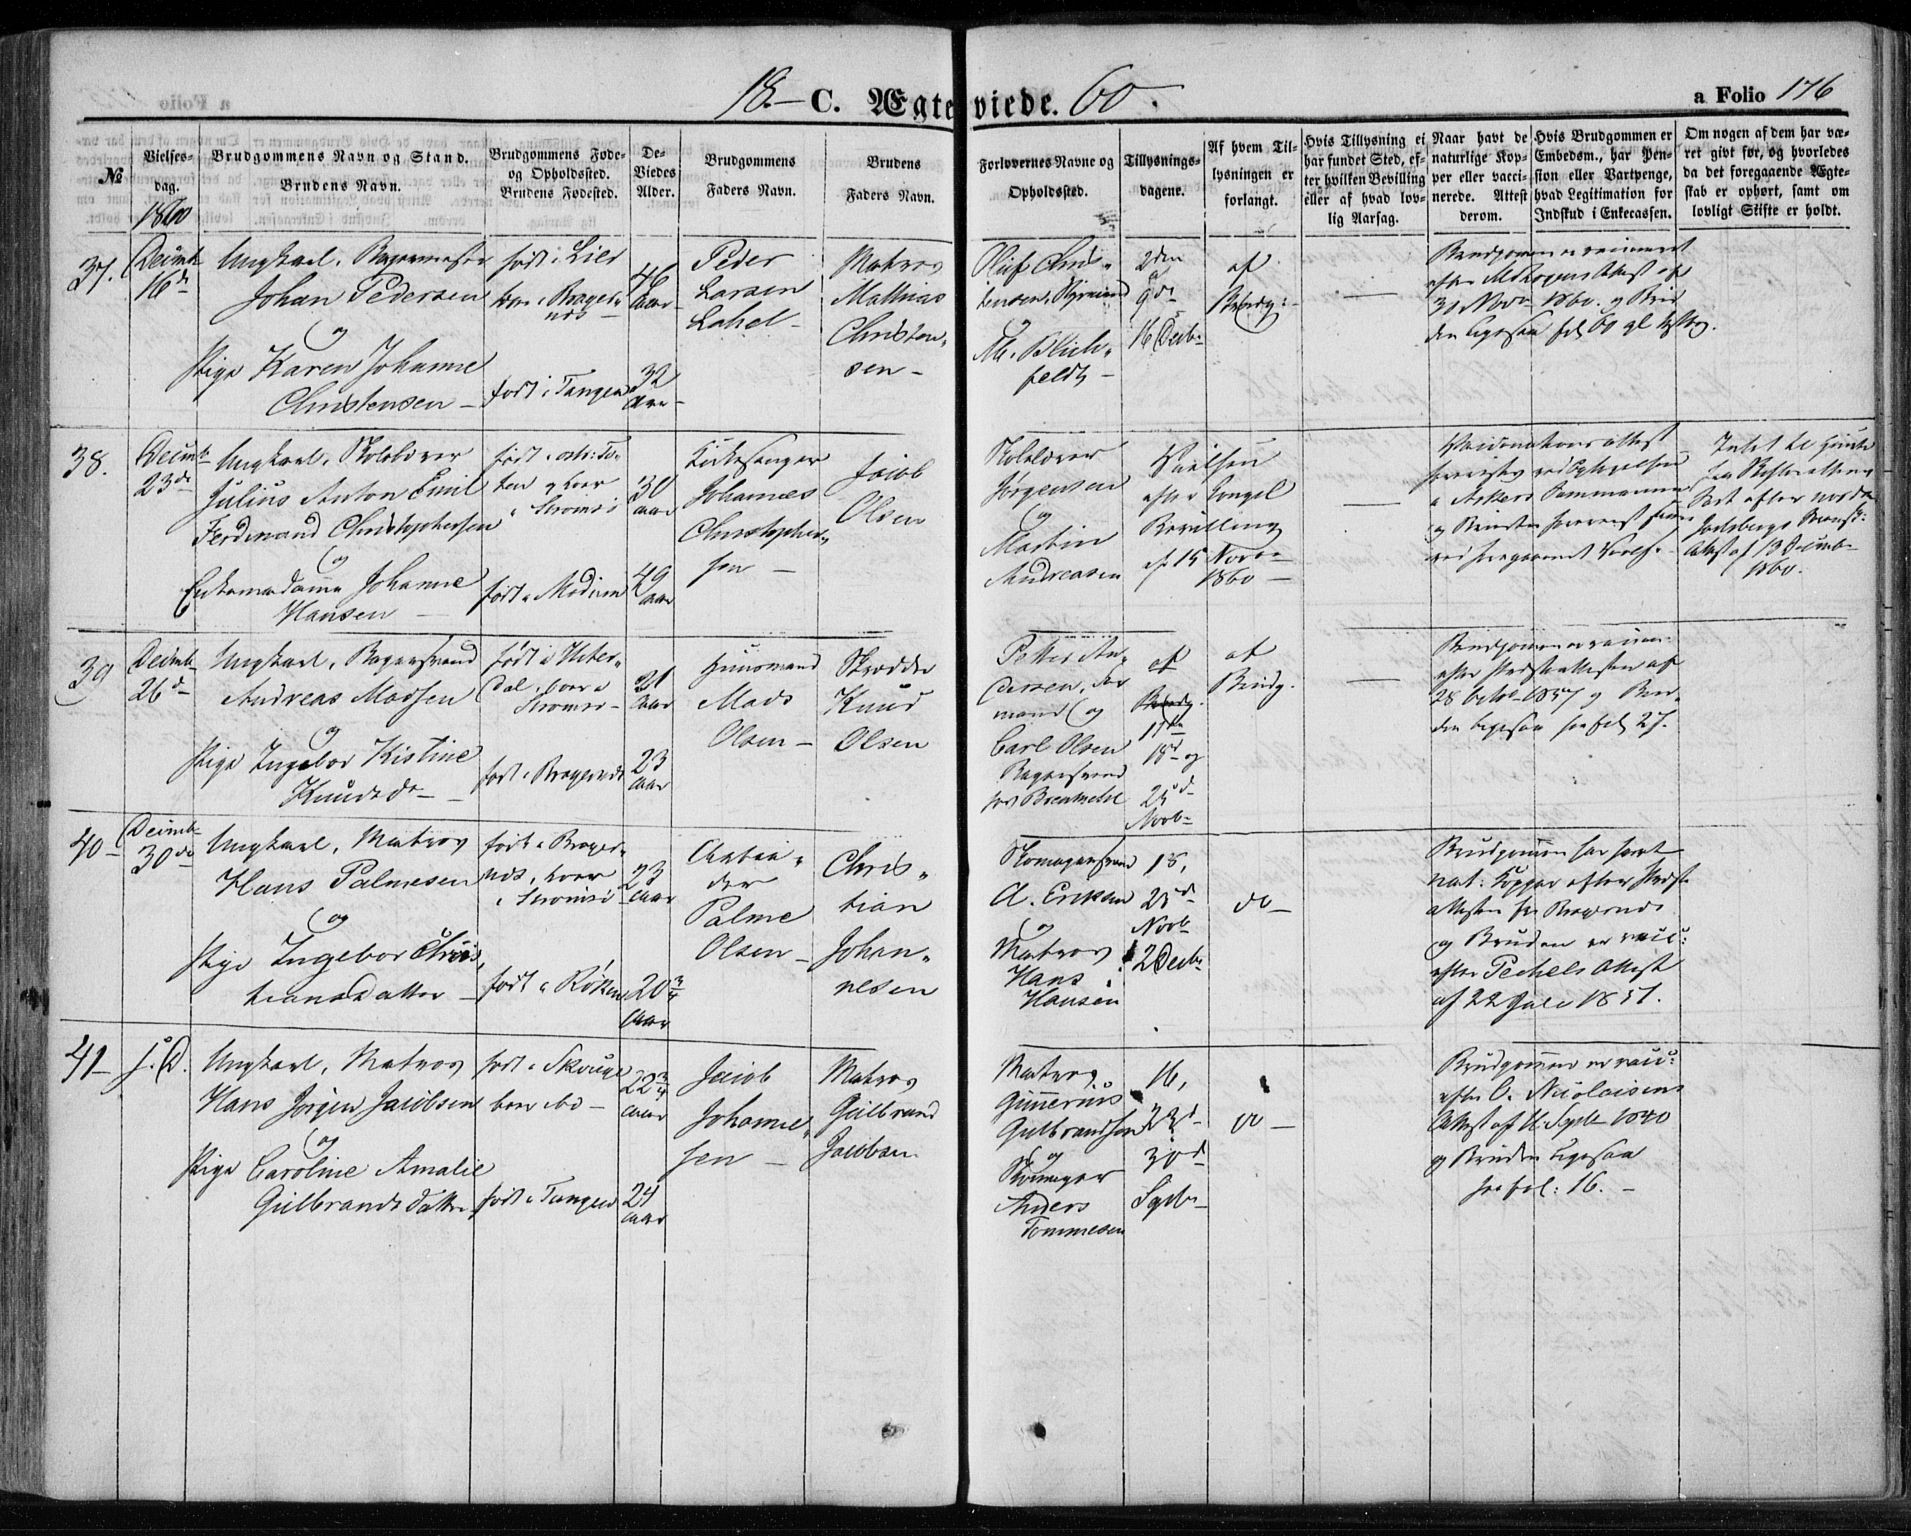 18 – C. Ægteviede. 60.
a Folio 176
№
Vielses-
dag.
1860
Brudgommens Navn og Stand.
Brudens Navn.
Brudgommens Føde-
og Opholdssted.
Brudens Fødested.
De
Viedes
Alder.
Brudgommens
Faders Navn.
Brudens
Faders Navn.
Forlovernes Navne og
Opholdssted.
Tillysnings-
dagene.
Af hvem Til-
lysningen er
forlangt.
Hvis Tillysning ei
har fundet Sted, ef-
ter hvilken Bevilling
eller af hvad lov-
lig Aarsag.
Naar havt de
naturlige Kop-
per eller vacci-
nerede. Attest
derom.
Hvis Brudgommen er
Embedsm., har Pen-
sion eller Vartpenge,
hvad Legitimation for
Indskud i Enkecassen.
Om nogen af dem har væ-
ret givt før, og hvorledes
da det foregaaende Ægte-
skab er ophørt, samt om
lovligt Skifte er holdt.
37.
Decemb
16de
Ungkarl, Bagermester
Johan Pedersen
og
Pige Karen Johanne
Christensen –
født i Lier
boer i Brager-
næs –
født i Tangen
46
Aar
32
Aar
Peder
Larsen
Lahel –
Matros
Mathias
Christen-
sen –
Oluf Chris-
tensen, Styrmand
og
M. Blich-
feldt –
2den
9de
16 Decbr
af
Brudg:
–
Brudgommen er vaccineret
efter
30 Novbr 1860. og Bru-
den ligesaa fol 60
38.
Decemb
23de
Ungkarl, Skolelærer
Julius Anton Emil
Ferdinand Christophersen
og
Enkemadame Johanne
Hansen –
født i østr: To-
ten og boer
i Strømsø
født i Modum
30
Aar
49
Aar
Kirkesanger
Johannes
Christopher-
sen –
Jacob
Olsen
Skolelærer
Jørgensen
og
Martin
Andreasen
Vielsen
efter Kongel
Bevilling
af 15 Novbr
1860 –
–
Vaccinations attest
i Askers
og Bruden
ved foregaaende Vielse.
Intet til Hinder
fra Skifteretten
Jarlsbergs
Attest af 13 Decemb
1860.
39
Decemb
26de
Ungkarl, Bagersvend
Andreas Madsen
og
Pige Ingebor Kistine
Knudsdr –
født i Hiter-
dal, boer i
Strømsø –
født i Bragernæs
31
Aar
23
Aar
Huusmand
Mads
Olsen –
Skrædder
Knud
Olsen
Petter An-
dersen,
mand og
Carl Olsen
Bagersvend
af
11te
18d og
25d
Novb
af
Brudg.
–
Brudgommen er vaccin:
efter Præsteattesten af
28 1857 og Bru-
den ligesaa see fol 27.
40 –
Decemb
30de
Ungkarl, Matros
Hans Palmesen
og
Pige Ingebor Chris-
tiansdatter –
født i Brager-
næs, boer
i Strømsø
født i Røken
23
Aar
20¾
Aar
Arbei-
der
Palme
Olsen –
Chris-
tian
Johan-
nesen
Skomagersvend
A. Eriksen
og
Matros
Hans
Hansen
18,
25d
Novb
2 Decbr
do –
Brudgommen har havt
nat: Kopper efter Præste
attesten fra Bragernæs
og Bruden er vacc:
efter Pechels Attest
af 22 Juli 1851.
41 –
s. D.
Ungkarl, Matros
Hans Jørgen Jacobsen
og
Pige Caroline Amalie
Gulbrandsdatter
født i Skouge
boer ibd –
født i Tangen
22¾
Aar
24
Aar
Jacob
Johanne-
sen –
Matros
Gulbrand
Jacobsen
Matros
Gunnerius
Gulbrandsen
og
Skomager
Anders
Tommesen
16,
23d
30d
Septbr
do –
Brudgommen er vacc:
efter O. Nicolaisens
Attest af 11 Septbr 1840
og Bruden ligesaa
see fol: 16. –